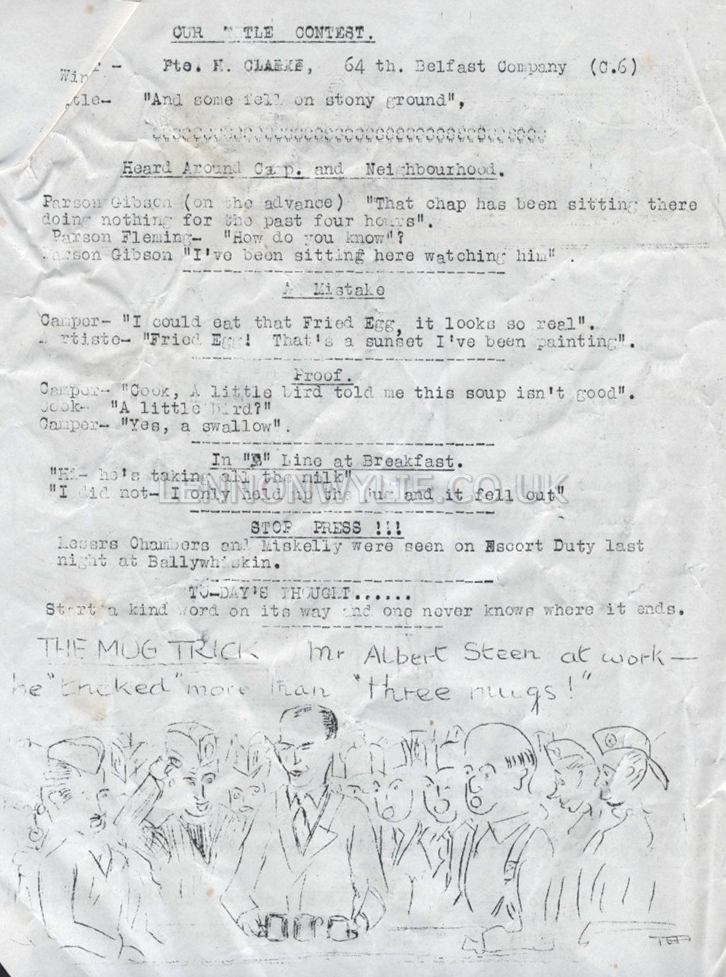 OUR T TLE CONTEST.
Win - Pte. H. CLARKE, 64 th. Belfast Company (C.6)
tle- "And some fell on stony ground",
Heard Around Camp. and Neighbourhood.
Parson Gibson (on the advance) "That chap has been sitting there
doing nothing for the past four hours".
Parson Fleming- "How do you know"?
Parson Gibson "I've been sitting here watching him" .
A Mistake
Camper- "I could eat that Fried Egg, it looks so real".
Artiste- "Fried Egg! That's a sunset I've been painting".
Proof.
Camper- "Cook, A little bird told me this soup isn't good".
Cook- "A little bird?"
Camper- "Yes, a swallow".
In "E" Line at Breakfast.
"Hi- he's taking all the milk"
"I did not- I only held by the jug and it fell out"
LENNONWYLIE.CO.UK
STOP PRESS !!!
Messrs Chambers and Miskelly were seen on Escort Duty last
night at Ballywhiskin.
TO-DAY'S THOUGHT......
Start a kind word on its way and one never knows where it ends.
THE MUG TRICK Mr Albert Steen at work —
he "tricked" more than "three mugs!"